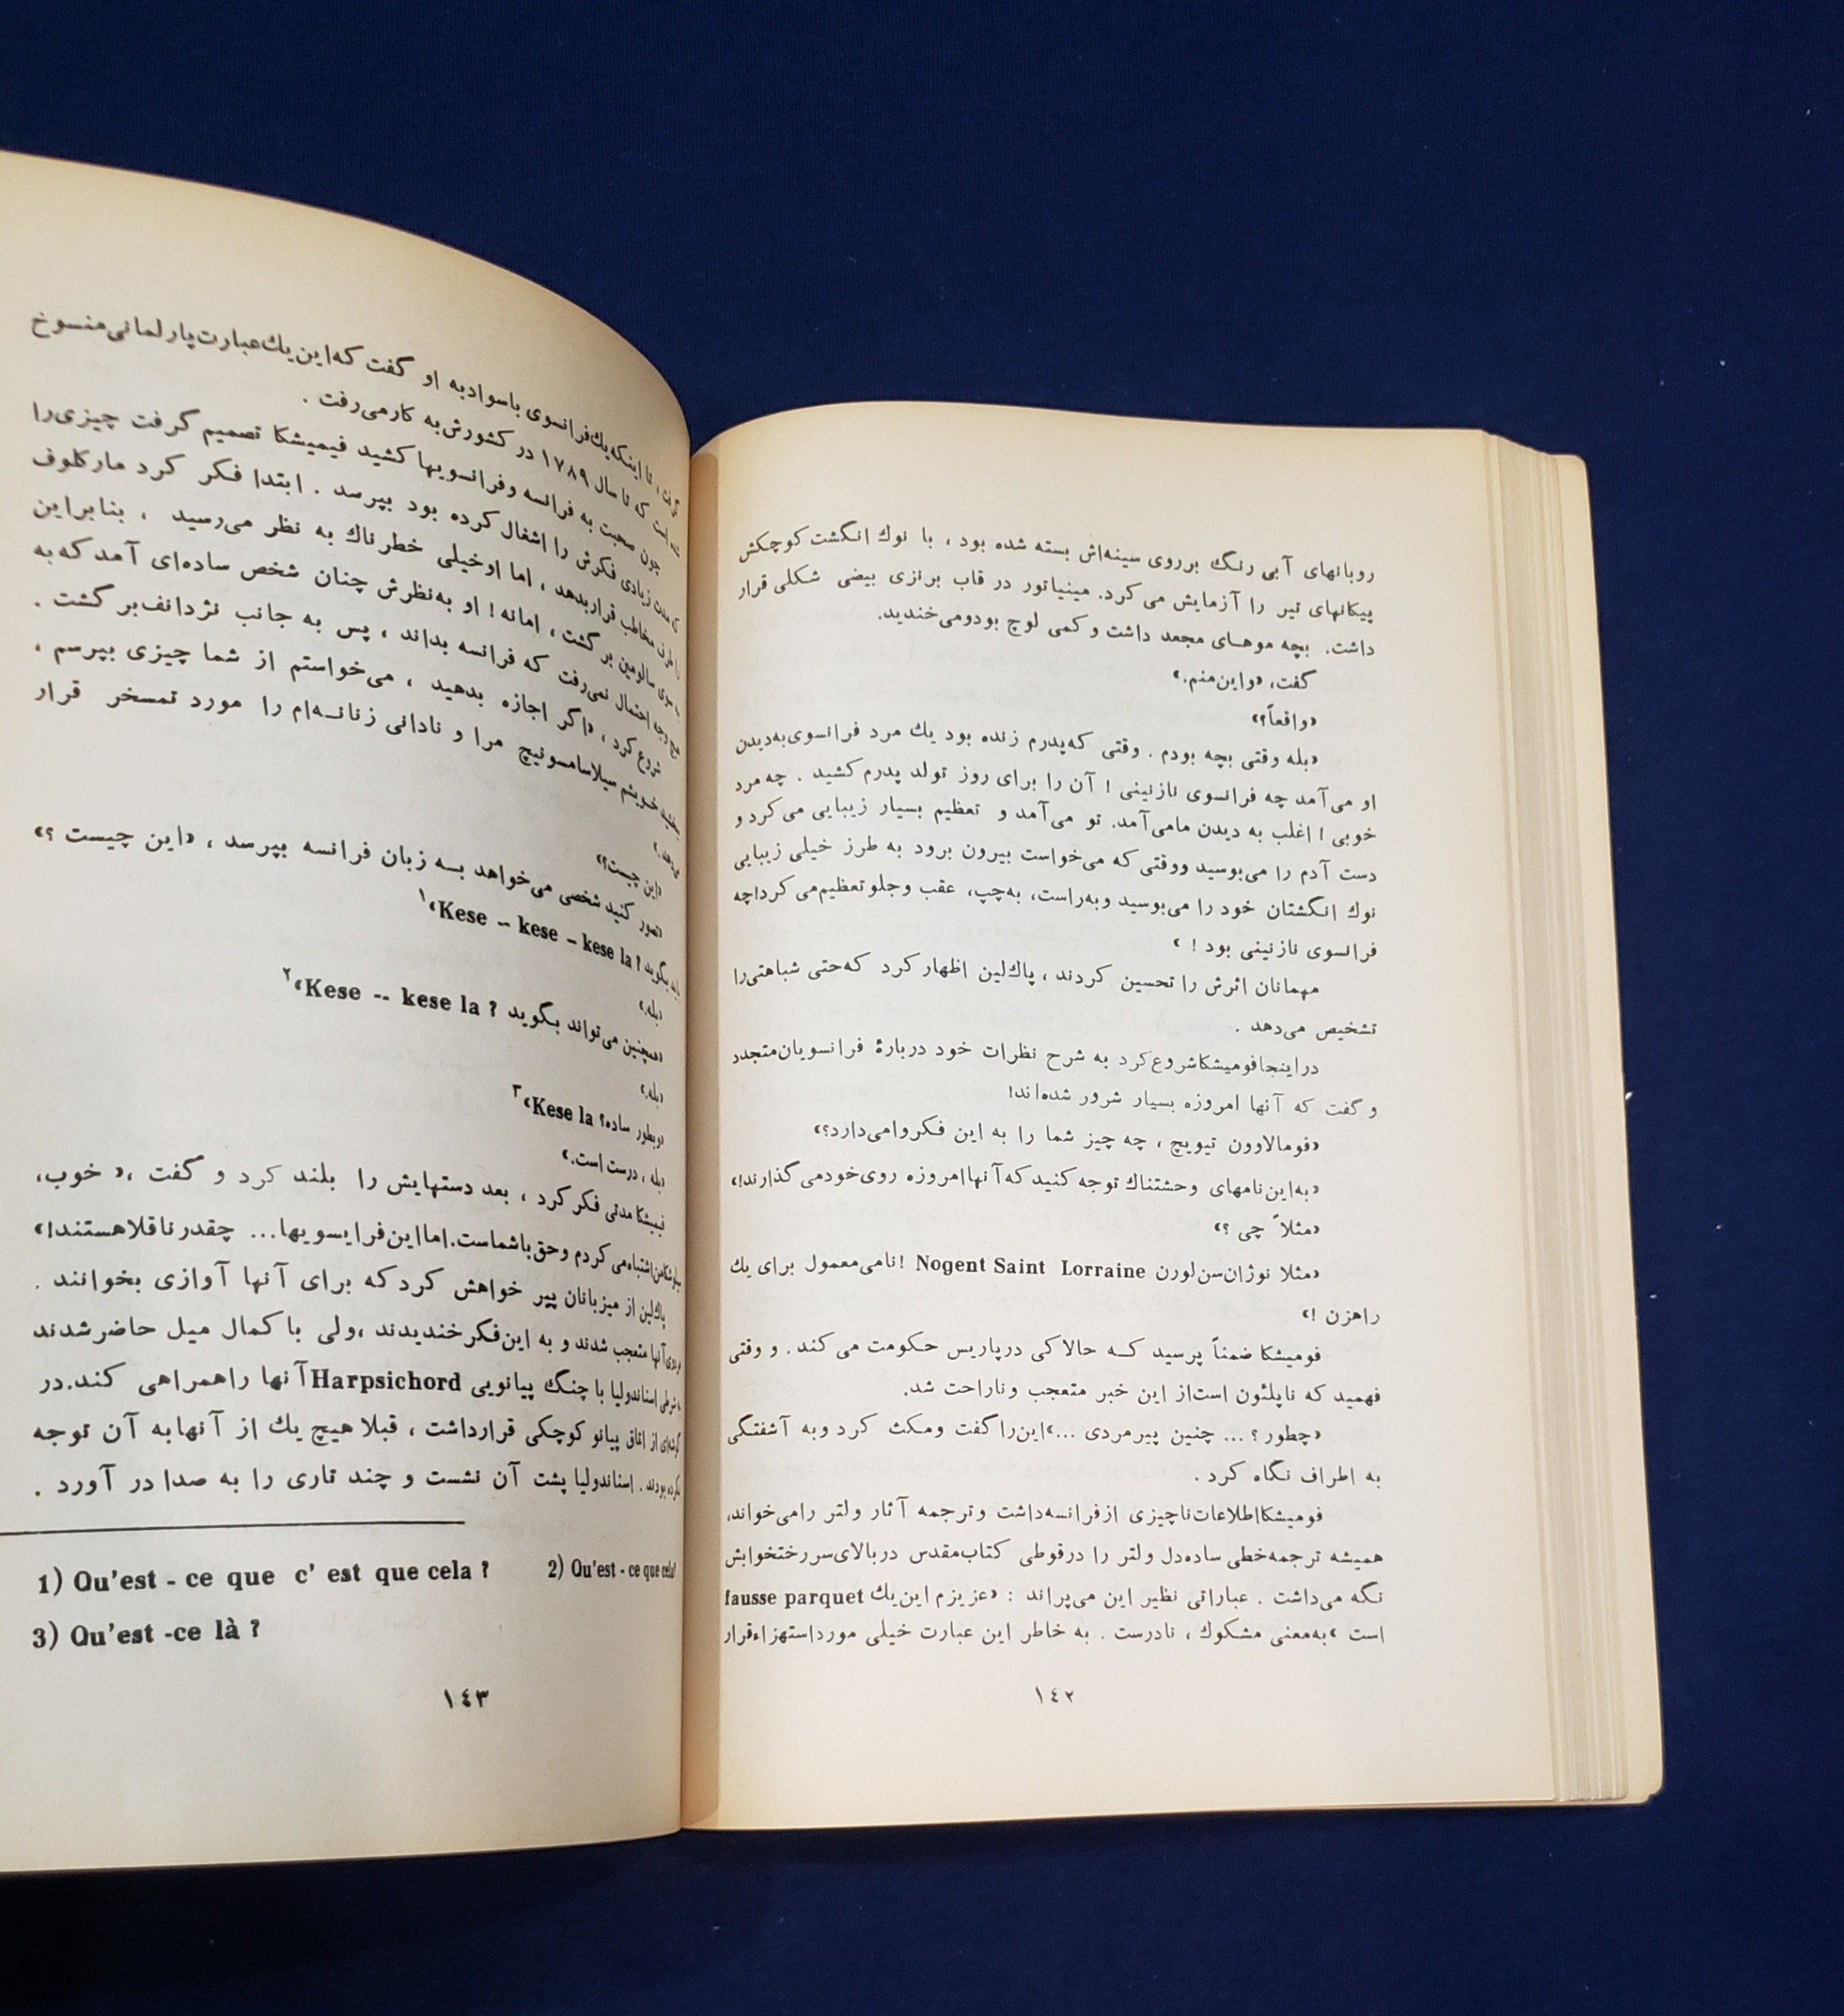 روبانهای آبی رنگ برروی سینه‌اش بسته شده بود ، با نوك انگشت کوچکش
پیکانهای تیر را آزمایش می‌کرد. مینیاتور در قاب برنزی بیضی شکلی قرار
داشت. بچه موهـای مجعد داشت و کمی لوچ بودومی‌خندید.
گفت، «واین‌منم.»
«واقعاً؟»
«بله وقتی بچه بودم . وقتی که‌پدرم زنده بود يك مرد فرانسوی‌به‌دیدن
او می‌آمد چه فرانسوی نازنینی ! آن را برای روز تولد پدرم کشید . چه مرد
خوبی ! اغلب به دیدن مامی‌آمد. تو می‌آمد و تعظیم بسیار زیبایی می‌کرد و
دست آدم را می‌بوسید ووقتی که می‌خواست بیرون برود به طرز خیلی زیبایی
نوك انگشتان خود را می‌بوسید وبه‌راست، به‌چپ، عقب وجلو تعظیم‌می کرد!چه
فرانسوی نازنینی بود ! »
مهمانان اثرش را تحسین کردند ، پاك‌لین اظهار کرد که‌حتی شباهتی‌را
تشخیص می‌دهد .
دراینجافومیشکاشروع‌کرد به شرح نظرات خود دربارهٔ فرانسویان‌متجدد
و گفت که آنها امروزه بسیار شرور شده‌اند!
«فومالاوون تیویچ ، چه چیز شما را به این فکروامی‌دارد؟»
«به‌این‌نامهای وحشتناك توجه کنید که آنهاامروزه روی‌خودمی گذارند!»
«مثلاً چی ؟»
«مثلا نوژان‌سن‌لورن Nogent Saint Lorraine !نامی‌معمول برای يك
راهزن !»
فومیشکا ضمناً پرسید کـه حالا کی درپاریس حکومت می کند . و وقتی
فهمید که ناپلئون است‌از این خبر متعجب وناراحت شد.
«چطور ؟ ... چنین پیرمردی ...»این‌را گفت ومکث کرد وبه آشفتگی
به اطراف نگاه کرد .
فومیشکااطلاعات‌ناچیزی ازفرانسه‌داشت وترجمه آثار ولتر رامی‌خواند،
همیشه ترجمه‌خطی ساده‌دل ولتر را درقوطی کتاب‌مقدس دربالای‌سررختخوابش
نگه می‌داشت . عباراتی نظیر این می‌پراند : «عزیزم این‌يك fausse parquet
است »به‌معنی مشکوك ، نادرست . به خاطر این عبارت خیلی مورداستهزاءقرار
۱٤۲
گرفت ، تا اینکه‌يك‌فرانسوی باسوادبه او گفت که‌این‌يك‌عبارت‌پارلمانی‌منسوخ
شده است که تا سال ۱۷۸۹ در کشورش‌به کارمی‌رفت .
چون صحبت به فرانسه وفرانسویها کشید فیمیشکا تصمیم گرفت چیزی‌را
که مدت زیادی فکرش را اشغال کرده بود بپرسد . ابتدا فکر کرد مارکلوف
را طرف مخاطب قراربدهد ، اما اوخیلی خطرناك به نظر می‌رسید ، بنابراین
به سوی سالومین بر گشت ، امانه! او به‌نظرش چنان شخص ساده‌ای آمد که‌به
هیچ وجه احتمال نمی‌رفت که فرانسه بداند ، پس به جانب نژدانف‌بر گشت .
شروع کرد ، «اگر اجازه بدهید ، می‌خواستم از شما چیزی بپرسم ،
ببخشید خویشم سیلاسامسونیچ مرا و نادانی زنانـه‌ام را مورد تمسخر قرار
می‌دهد.»
«این چیست؟»
«تصور کنید شخصی می‌خواهد بـه زبان فرانسه بپرسد ، «این چیست ؟»
باید بگوید ؟ Kese -- kese – kese la»۱
«بله.»
«همچنین می‌تواند بگوید ؟ Kese -- kese la»۲
«بله.»
«وبطور ساده؟ Kese la»۳
«بله ، درست است.»
فیمیشکا مدتی فکر کرد ، بعد دستهایش را بلند کرد و گفت ،« خوب،
سیلوشکامن‌اشتباه‌می کردم وحق‌باشماست.امااین‌فرایسویها... چقدرناقلاهستند!»
پاك‌لین از میزبانان پیر خواهش کرد که برای آنها آوازی بخوانند .
هردوی آنها متعجب شدند و به این‌فکر خندیدند ،ولی با کمال میل حاضر شدند
به شرطی اسناندولیا با چنگ پیانویی Harpsichord آنها راهمراهی کند.در
گوشه‌ای از اتاق پیانو کوچکی قرارداشت ، قبلا هیچ يك از آنهابه آن توجه
نکرده بودند . اسناندولیا پشت آن نشست و چند تاری را به صدا در آورد .
1) Qu'est - ce que c' est que cela ? 2) Qu'est - ce que cela?
3) Qu'est -ce là ?
۱٤۳